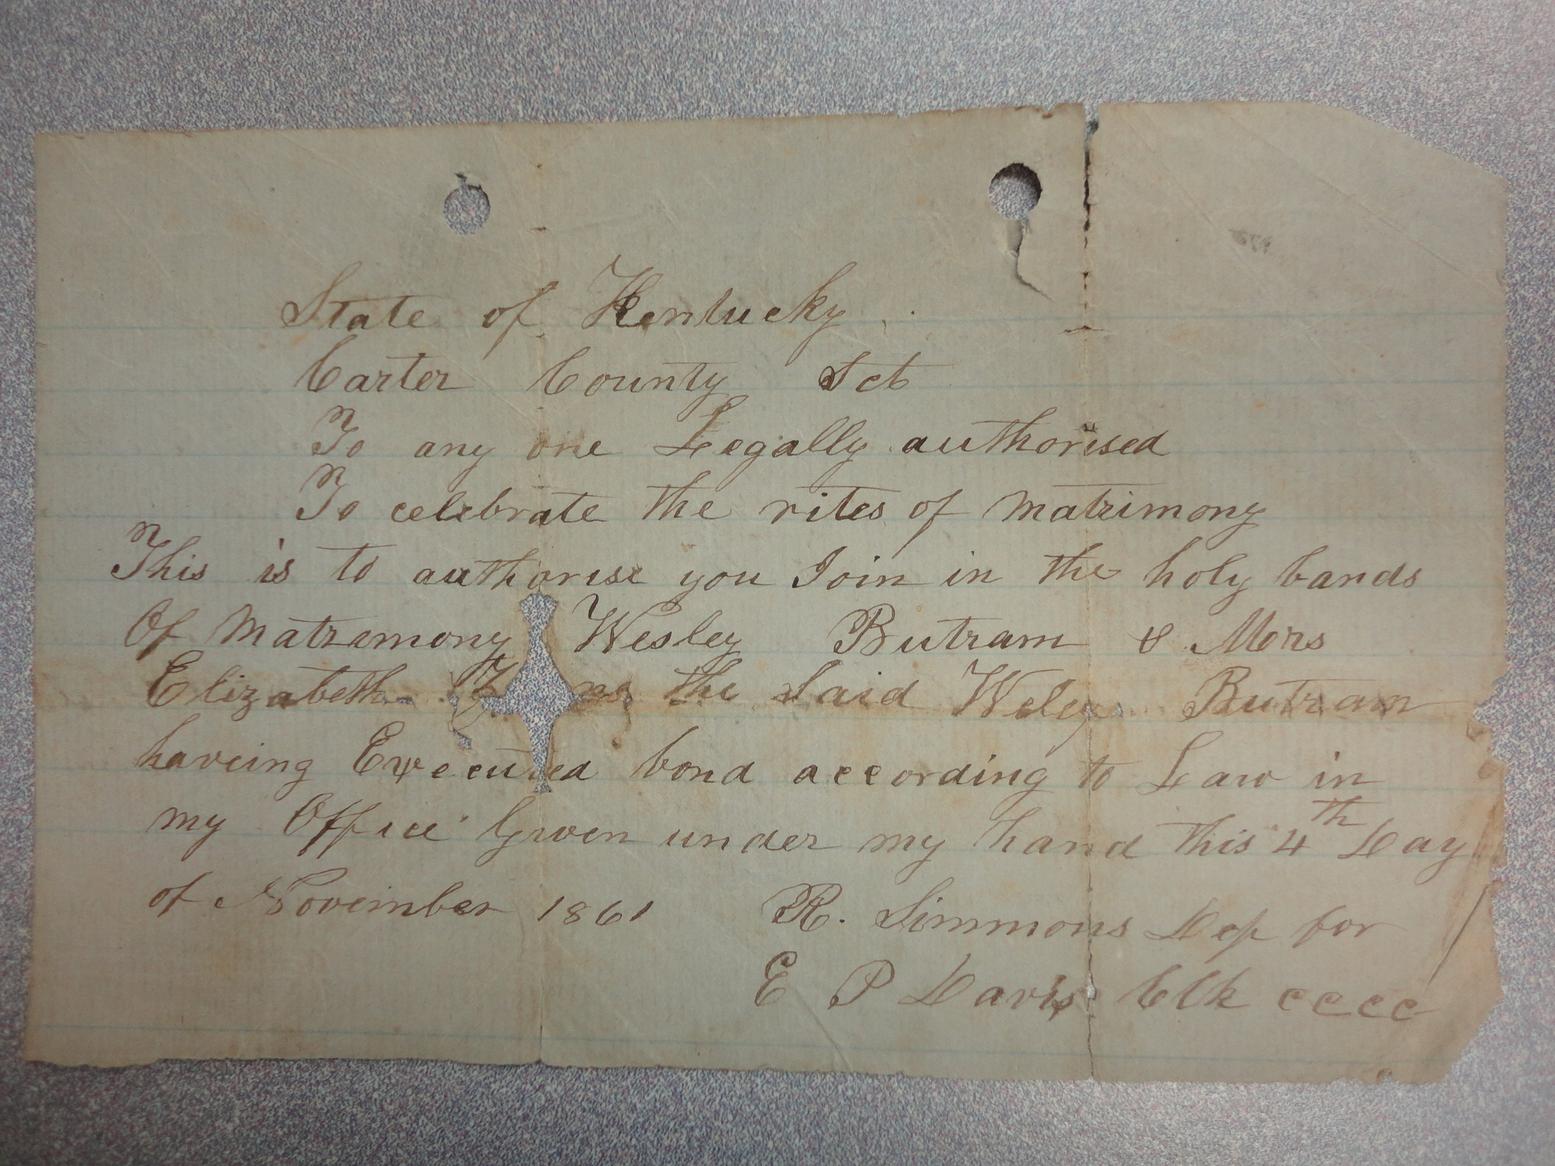 State of Kentucky
Carter County Sct
To any one Legally authorised
To celebrate the rites of Matrimony
This is to authorise you Join in the holy bands
Of Matramony Wesley Butram & Mors
Elizabeth the Said Butram
haveing Executed bond according to Law in
my Office Given under my hand this 4th Day
of November 1861 R. Simmons Dep for
E P Davis Clk cccc